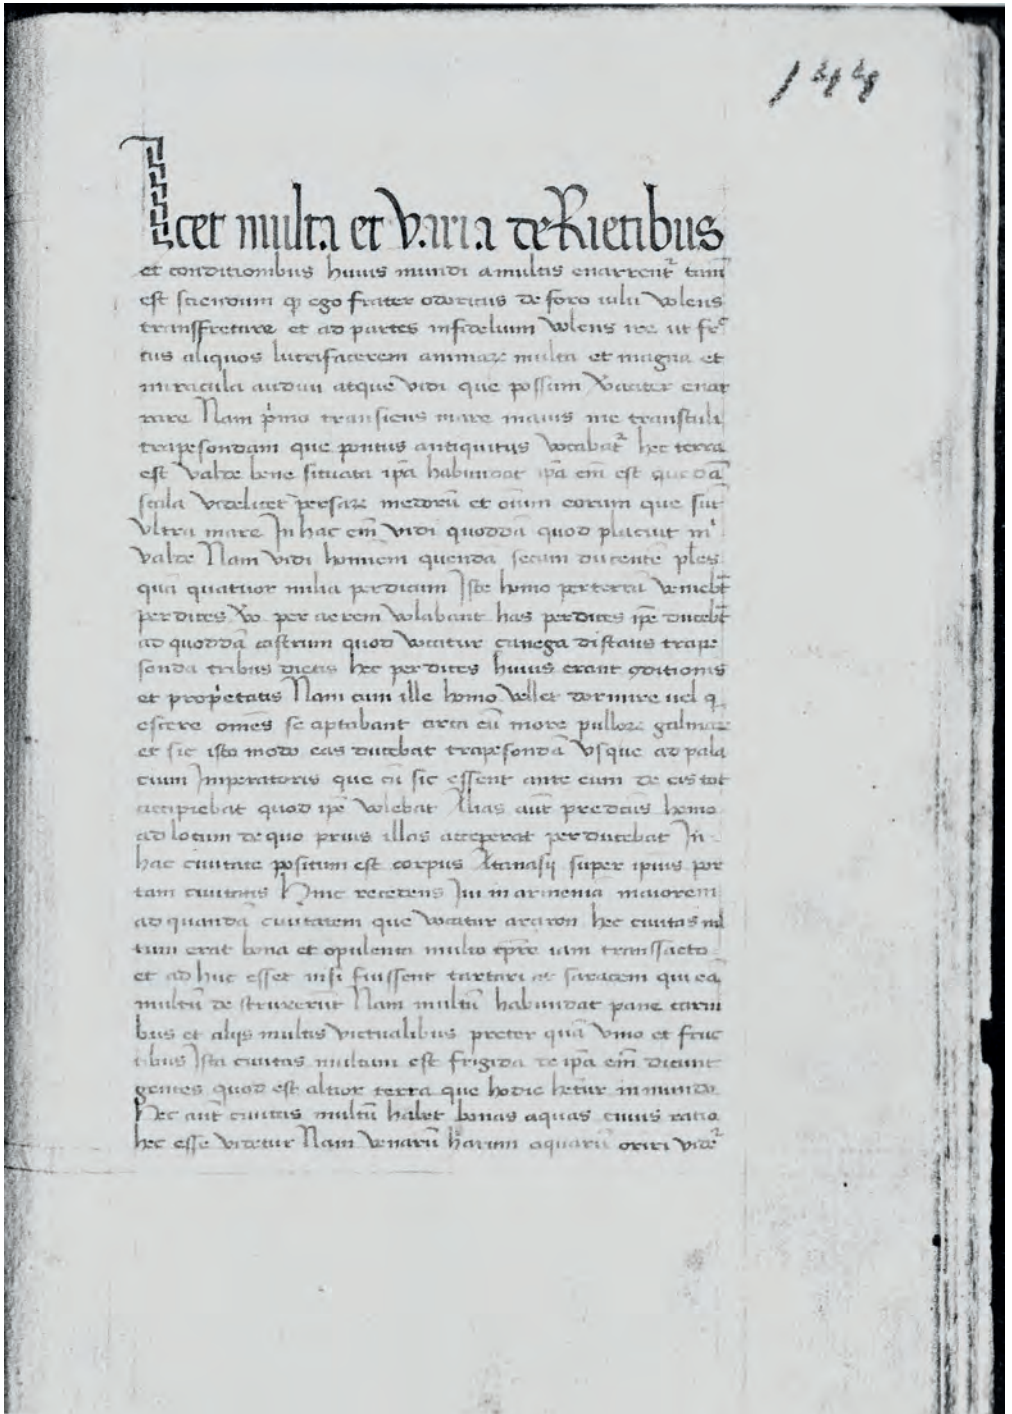 144
Licet multa et varia de Rietibus
et conditionibus huius mundi a multis enarrent᷑ tam̄
est sciendum ꝙ ego frater odoricus de foro iulii volens
transfretare et ad partes infidelium volens ire ut fr̄c
tus aliquos lucrifacerem animaꝝ multa et magna et
miracula audiui atque vidi que possum v̓aciter enar
rare Nam p̓mo transiens mare maius me transtuli
trapesondam que pontus antiquitus vocabat᷑ hec terra
est valde bene situata ip̄a habundat ip̄a em̄ est quedā
scala videlicet persaꝝ medorū et oīum eorum que sūt
vltra mare In hac em̄ vidi quoddā quod placuit m̓
valde Nam vidi hominem quendā secum ducentē pl̄es
quā quatuor milia perdicum Iste homo per terrā veniebt̄
perdices v̓o per aerem volabant has perdices ip̄e ducebt̄
ad quoddā castrum quod vocatur canega distans trape
sonda tribus dietis hec perdices huius erant ꝯditionis
et prop̓etatis Nam cum ille homo vellet dormire uel q̓
escere om̄es se aptabant circa eū more pulloꝝ galinaꝝ
et sic isto modo eas ducebat trapesondā vsque ad pala
cium Imperatoris que cū sic essent ante eum de eis tot
accipiebat quod ip̄e volebat Alias aūt predictus homo
ad locum de quo prius illas acceperat perducebat In
hac ciuitate positum est corpus Atanasij super ipius por
tam ciuitatis Hinc recedens Iui in armenia maiorem
ad quandā ciuitatem que vocatur araron hec ciuitas ml
tum erat bona et opulenta multo tp̄re iam transacto
et ad huc esset nisi fuissent tartari et saraceni qui eā
multū destruxerūt Nam multū habundat pane carni
bus et alijs multis victualibus preter quā vino et fruc
tibus Ista ciuitas multum est frigida de ip̄a em̄ dicunt
gentes quod est altior terra que hodie hetur in mundo
Hec aūt ciuitas multū habet bonas aquas cuius ratio
hec esse videtur Nam venarū harum aquarū oriri vide᷑